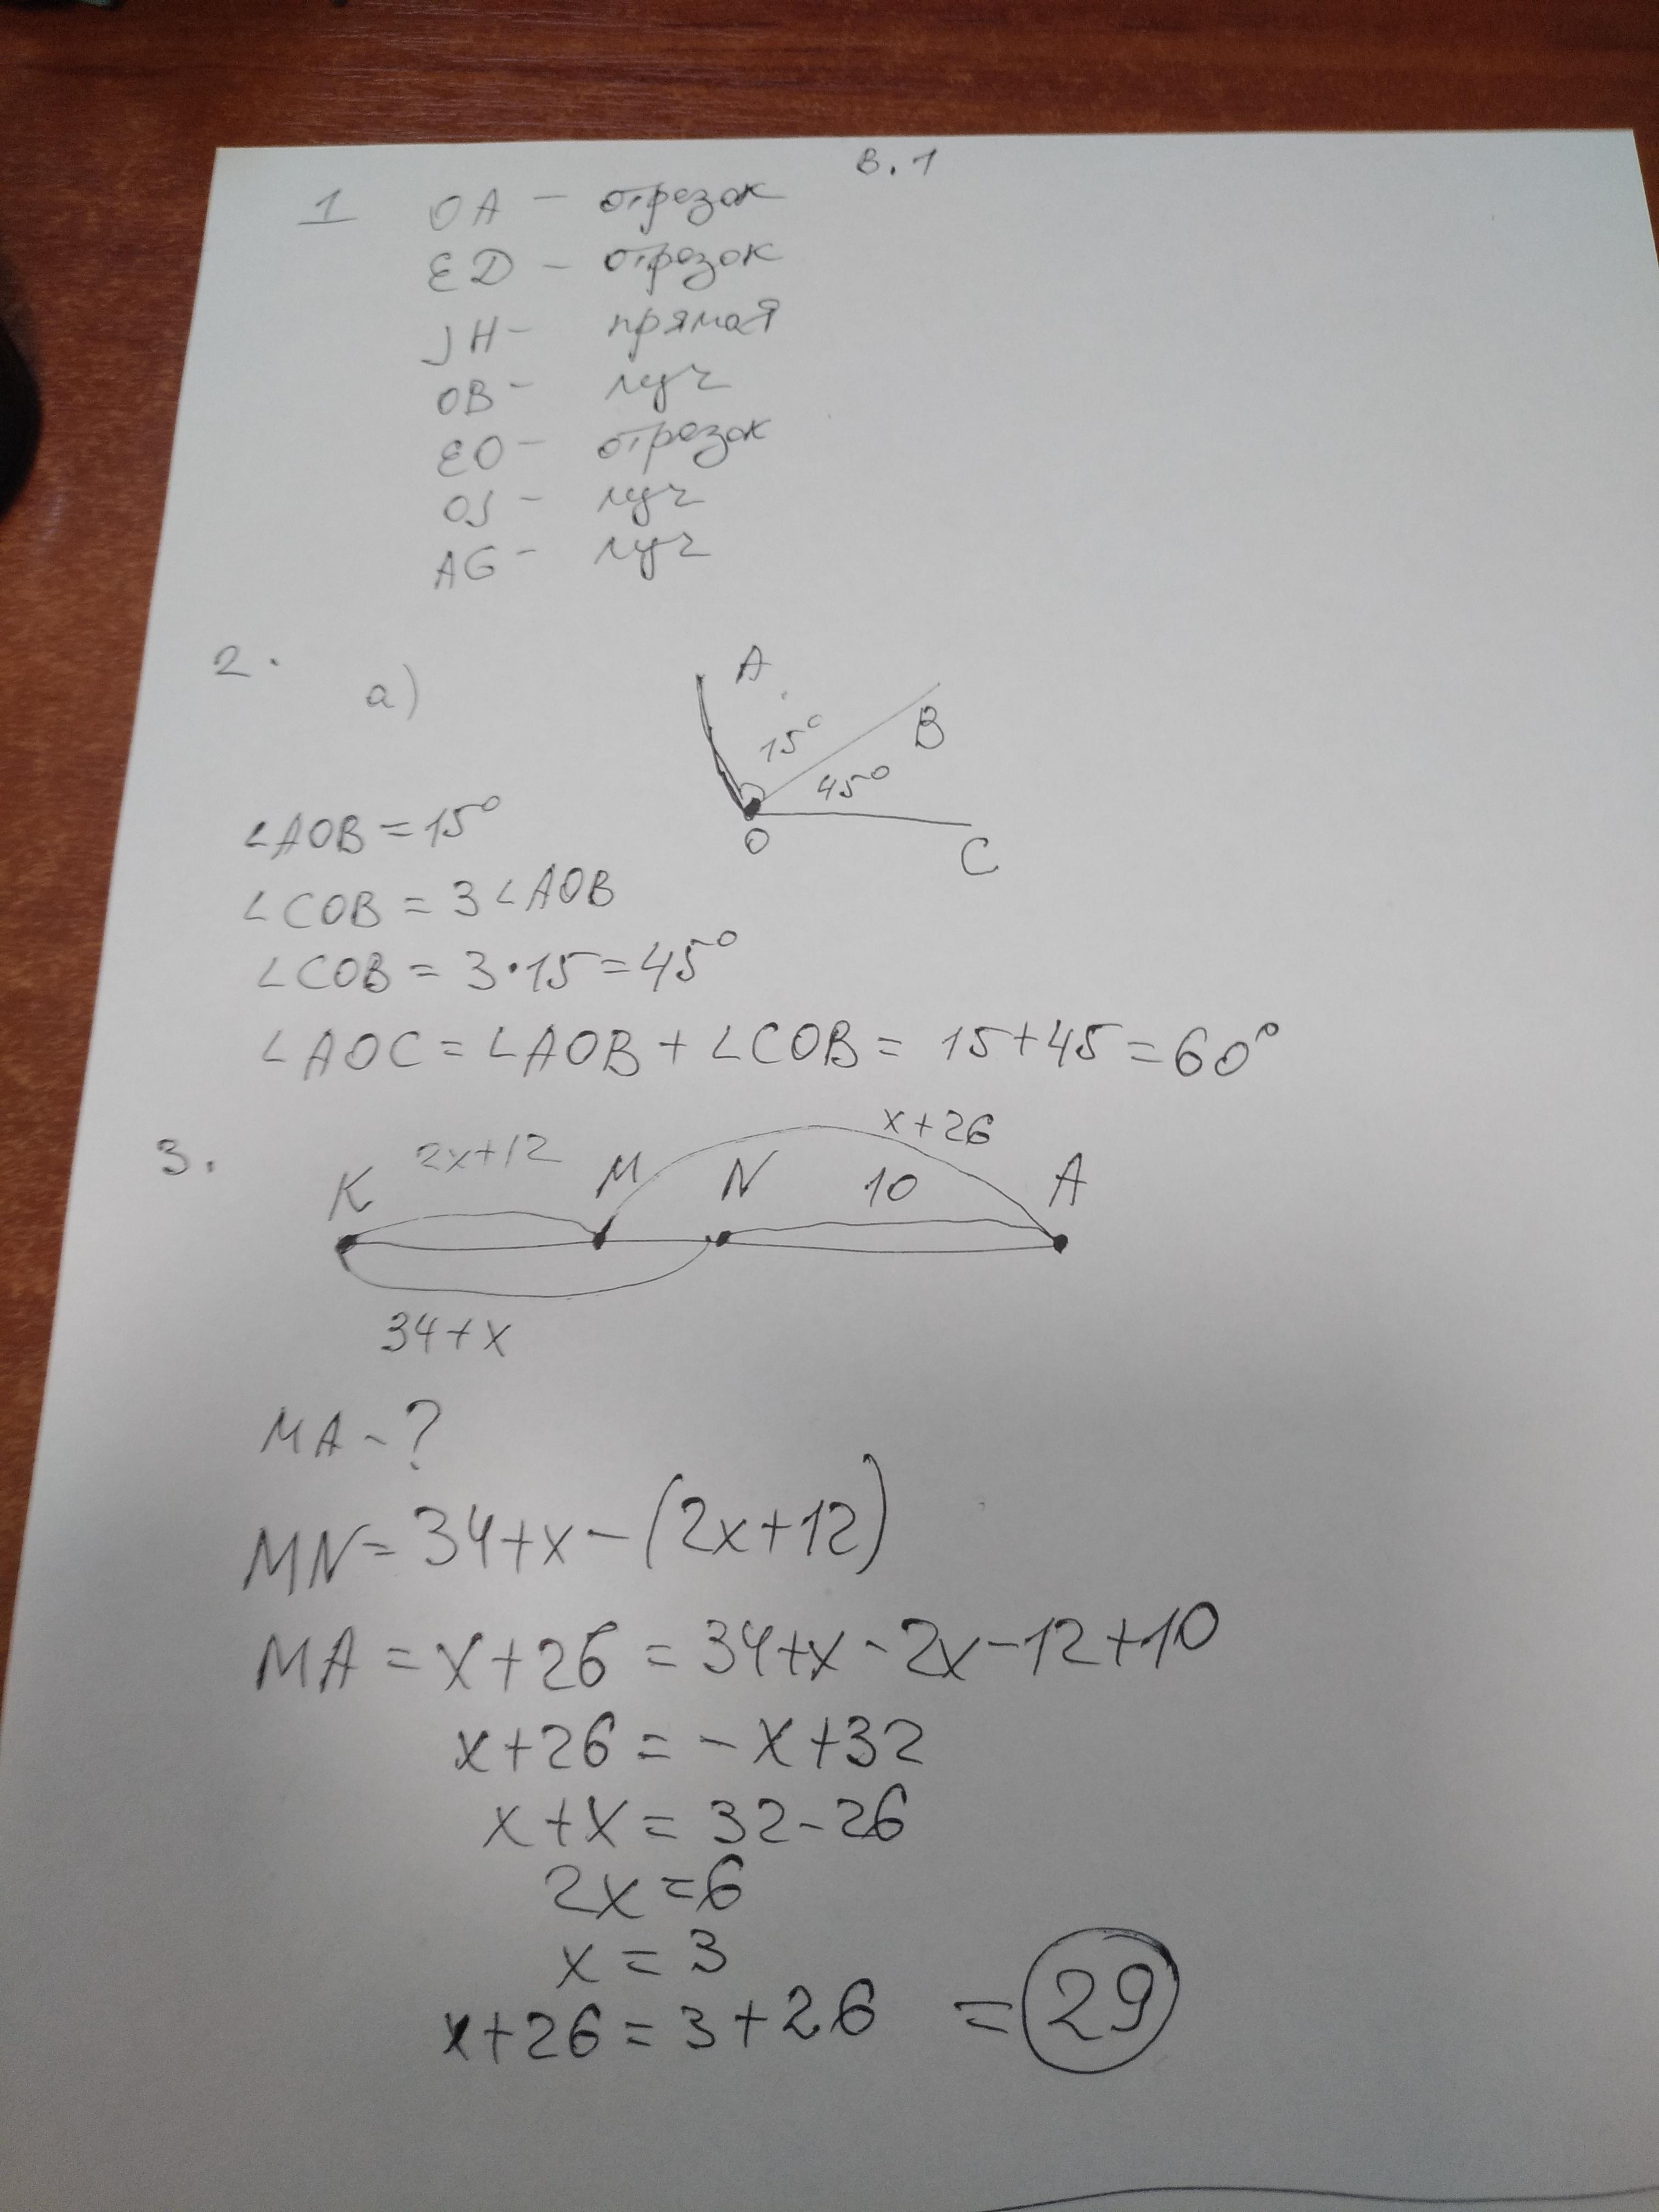 в. 1
1 OA — отрезок
ED — отрезок
JH — прямая
OB — луч
EO — отрезок
OJ — луч
AG — луч
2.
а)
A
15°
B
45°
O
C
∠AOB = 15°
∠COB = 3∠AOB
∠COB = 3·15 = 45°
∠AOC = ∠AOB + ∠COB = 15+45 = 60°
3.
x+26
2x+12
K M N 10 A
34+x
MA - ?
MN = 34+x-(2x+12)
MA = x+26 = 34+x-2x-12+10
x+26 = -x+32
x+x = 32-26
2x = 6
x = 3
x+26 = 3+26 = 29